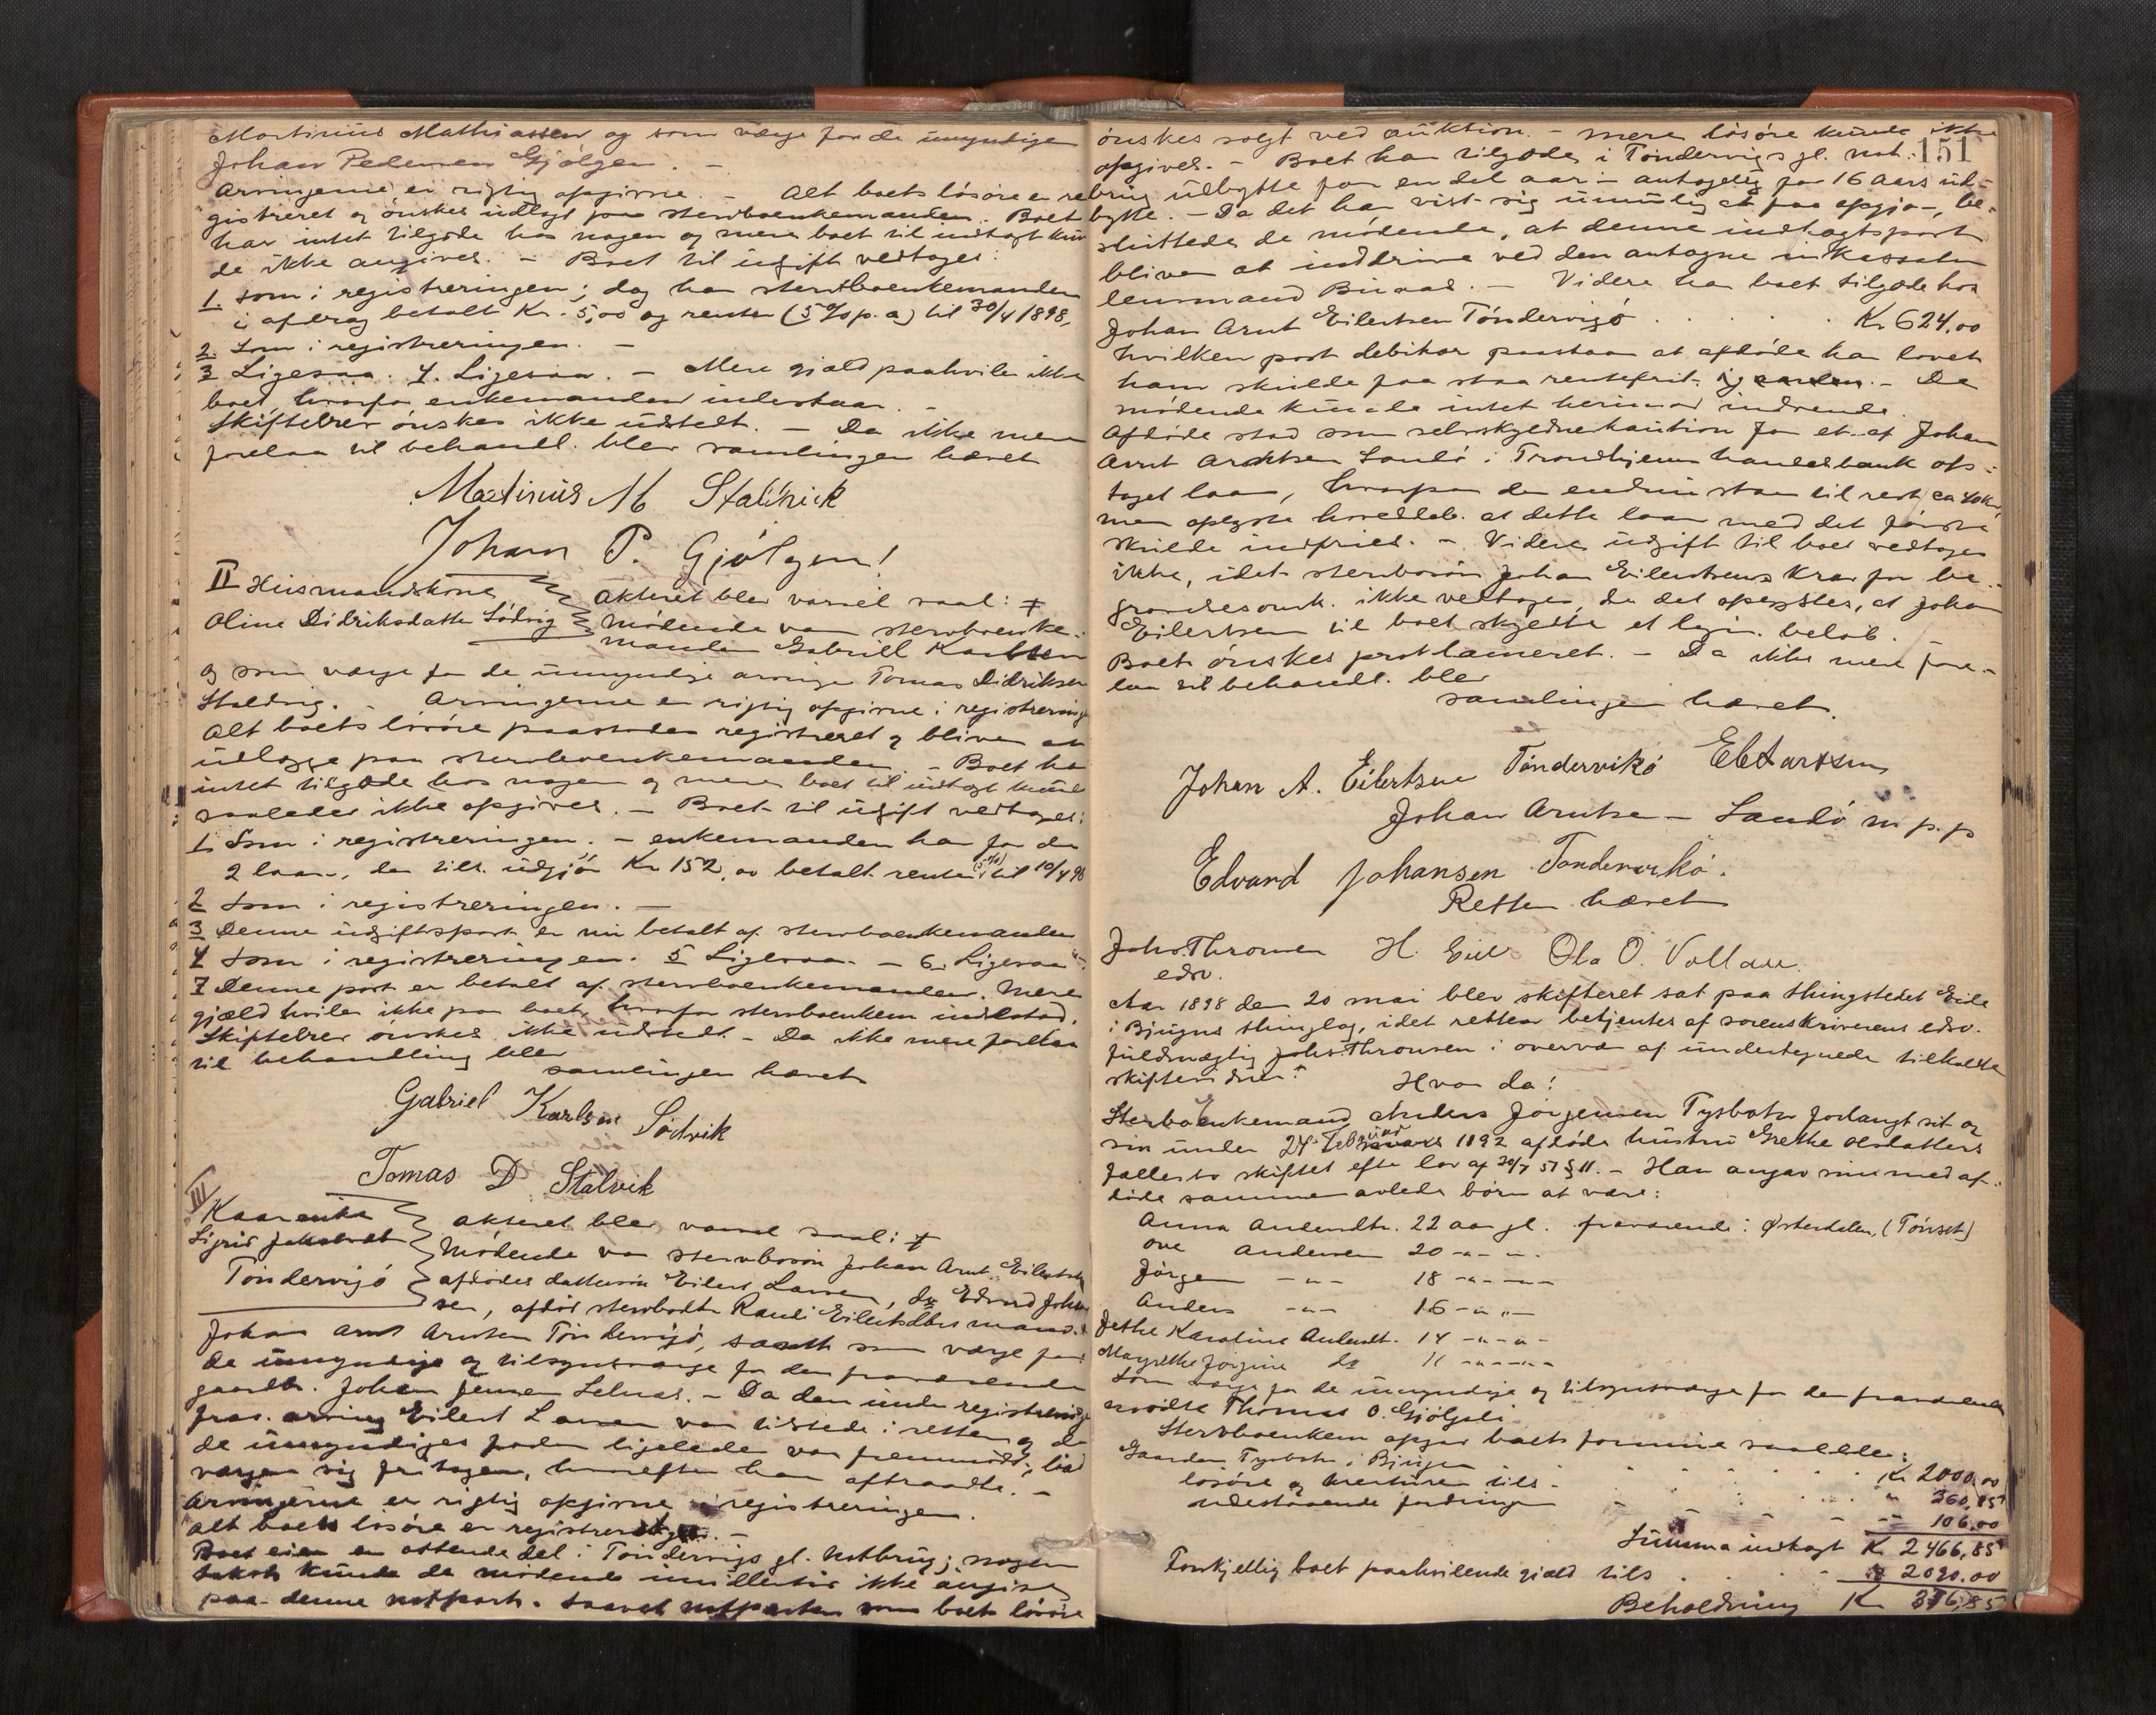 Martinus Mathiassen og som værge for de umyndige
Johan Pedersen Gjølgen. —
Arvingerne er rigtig opgivne. — Alt boets løsøre er re
gistreret og ønskes udlagt paa sterboenkemanden. Boet
har intet tilgode hos nogen og mere boet til indtægt kun
de ikke angives. — Boet til udgift vedtages:
1. Som i registreringen; dog har sterboenkemanden
i afdrag betalt Kr. 5,00 og renter (5 % p.a.) til 30/4 1898,
2. Som i registreringen. —
3 Ligesaa. 4. Ligesaa. — Mere gjæld paahviler ikke
boet, hvorfor enkemanden indestaar. —
Skiftebrev ønskes ikke udstedt. — Da ikke mere
forelaa til behandl. blev samlingen hævet
Martinus M Stallvick
Johan P. Gjølgen!
II Husmandskone
Oline Didriksdatter Sødvig
Akteret blev varsel saal: ≠
Mødende var sterboenke-
manden Gabriel Karlsen
og som værge for de umyndige arvinge Tomas Didriksen
Staldvig. — Arvingerne er rigtig opgivne i registreringe
Alt boets løsøre paastodes registreret og bliver at
udlægge paa sterboenkemanden. — Boet har
intet tilgode hos nogen og mere boet til indtægt kunde
saaledes ikke opgives. — Boet til udgift vedtages:
1. Som i registreringen. — enkemanden har for de
2 laan, der tils. udgjør Kr 152,00 betalt renter (5%) til 10/4 98
2 Som i registreringen. —
3 Denne udgiftspost er nu betalt af sterboenkemanden
4 Som i registreringen. 5 Ligesaa. — 6. Ligesaa
7 Denne post er betalt af sterboenkemanden. Mere
gjæld hviler ikke paa boet, hvorfor sterboenkem indestod.
Skiftebrev ønskes ikke udstedt. — Da ikke mere forelaa
til behandling blev
samlingen hævet
Gabriel Karlsen Sødvik
Tomas D Stalvik
III
Kaarenke
Sigrid Jakobsdt
Tøndervigø
akteret blev varsel saal: ≠
Mødende var sterboson Johan Arnt Eilertsen
afdødes dattersøn Eilert Larsen, do Edvard Johan
sen, afdød sterbodt. Randi Eilertsdtrs mand
Johan Arnt Arntsen Tøndervigø, samt som værge for
de umyndige og tilsynsværge for den fraværende
gaardbr. Johan Jensen Selnes. — Da den under registreringe
frav. arving Eilert Larsen var tilstede i retten og de
de umyndiges fader ligeledes var fremmødt, bad
værgen sig fritagen, hvorefter han aftraadte. —
Arvingerne er rigtig opgivne i registreringen.
Alt boets løsøre er registreret. —
Boet eier en ottendedel i Tøndervigs gl. Notbrug; nogen
takst kunde de mødende imidlertid ikke angive
paa denne notpart. Saavel notparten som boets løsøre
151
ønskes solgt ved auktion. — mere løsøre kunde ikke
opgives. — Boet har tilgode i Tøndervigs gl. not.
brug udbytte for en del aar — antagelig for 16 aars ud-
bytte. — Da det har vist sig umulig at faa opgjør, be-
sluttede de mødende, at denne indtægtspost
bliver at inddrive ved den antagne inkassator
lensmand Buaas. — Videre har boet tilgode hos
Johan Arnt Eilertsen Tøndervigø . . . . . Kr 624,00
hvilken post debitor paastaar at afdøde har lovet
ham skulde faa staa rentefrit. — De
mødende kunde intet herimod indvende.
Afdøde stod som selvskyldnerkaution for et af Johan
Arnt Arntsen Sandø i Trondhjems handelsbank op-
taget laan, hvorpaa der endnu staar til rest ca 40 kr,
men oplyste hovedded. at dette laan med det første
skulde indfries. — Videre udgift til boet vedtages
ikke, idet sterboson Johan Eilertsens krav for be-
gravelsesomk. ikke vedtages, da det oplystes, at Johan
Eilertsen til boet skyldte et lign. beløb. —
Boet ønskes proklameret. — Da ikke mere fore-
laa til behandl. blev
samlingen hævet.
Johan A. Eilertsen Tøndervikø E Larssen
Johan Arntsen — Sandø m.p.p
Edvard Johansen Tøndervikø.
Retten hævet
Johs. Thronsen H. Eid Ola O. Vollan.
edsv.
Aar 1898 den 20 mai blev skifteret sat paa thingstedet Eide
i Bjugns thinglag, idet retten betjentes af sorenskriverens edsv.
fuldmægtig Johs. Thronsen i overvær af undertegnede tilkaldte
skiftevidner.
Hvor da!
Sterboenkemand Anders Jørgensen Tysbotn forlangt sit og
sin under 24 Februar 1892 afdøde hustru Grethe Olsdatters
fællesbo skiftet efter lov af 30/7 51 § 11. — Han angav sine med af-
døde sammen avlede børn at være:
Anna Andersdtr. 22 aar gl. fraværende i Østerdalen, (Tønset)
Ove Andersen 20 -"- -"-
Jørgen -"- 18 -"- -"-
Anders -"- 16 -"- -"-
Jethe Karoline Andersdt. 14 -"- -"-
Magrethe Jørgine do 11 -"- -"-
Som værge for de umyndige og tilsynsværge for den fraværende
mødte Thomas O. Gjølgali
Sterboenkem opgav boets formue saaledes:
Gaarden Tysbotn i Bjugn . . . . . Kr 2000,00
løsøre og kreaturer tils. . . . . " 360,85
udestaaende fordringer — — — 106,00
Summa indtægt Kr 2466,85
Forskjellig boet paahvilende gjæld tils . . . . " 2090.00
Beholdning Kr 376,85